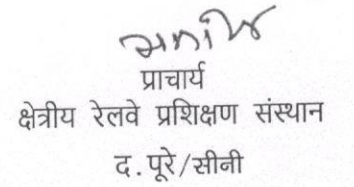 प्राचार्य
क्षेत्रीय रेलवे प्रशिक्षण संस्थान
द.पूरे/सीनी